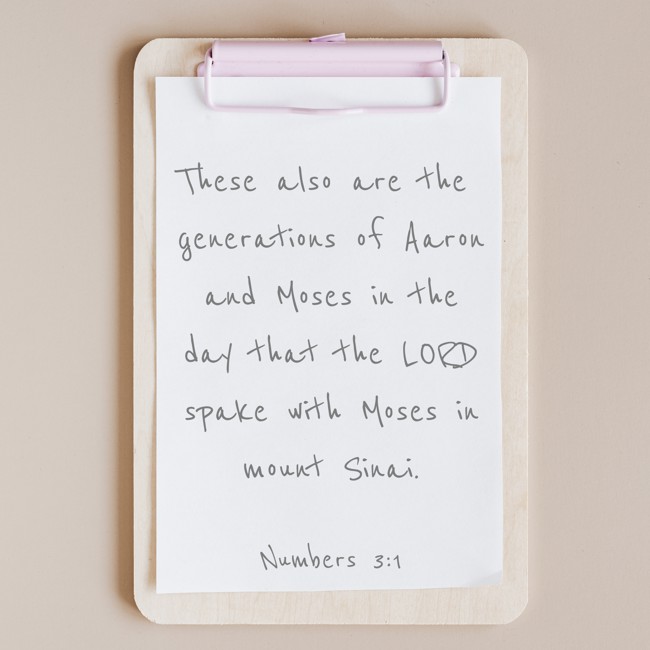 These also are the
generations of Aaron
and Moses in the
day that the LORD
spake with Moses in
mount Sinai.
Numbers 3:1